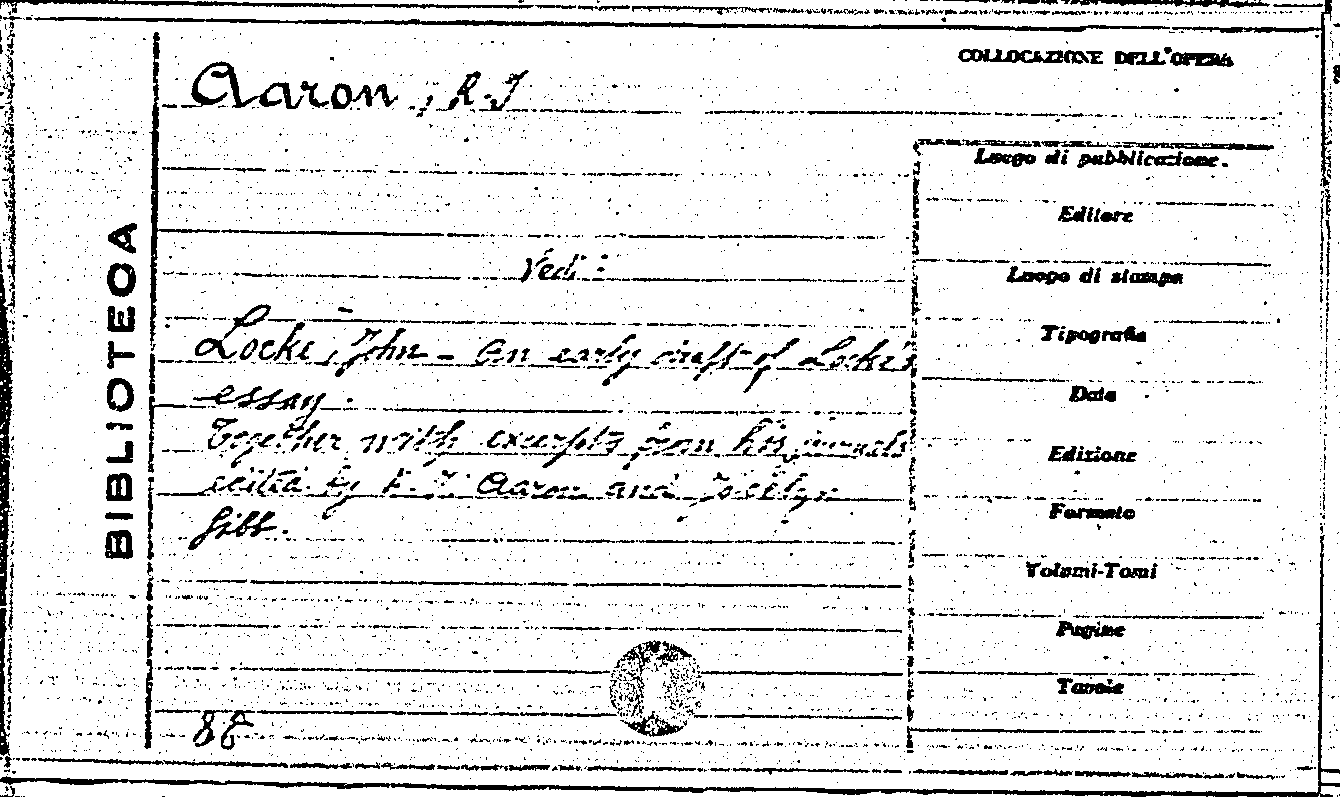 COLLOCAZIONE DELL'OPERA
Aaron, R.I
Luogo di pubblicazione.
Editore
Vedi:
Luogo di stampa
Tipografia
Locke, John - An early draft of Locke's
essay.
Data
Together with excerpts from his journals
Edizione
edited by R.I. Aaron and Jocelyn
Gibb.
Formato
Volumi-Tomi
Pagine
Tavole
BIBLIOTECA